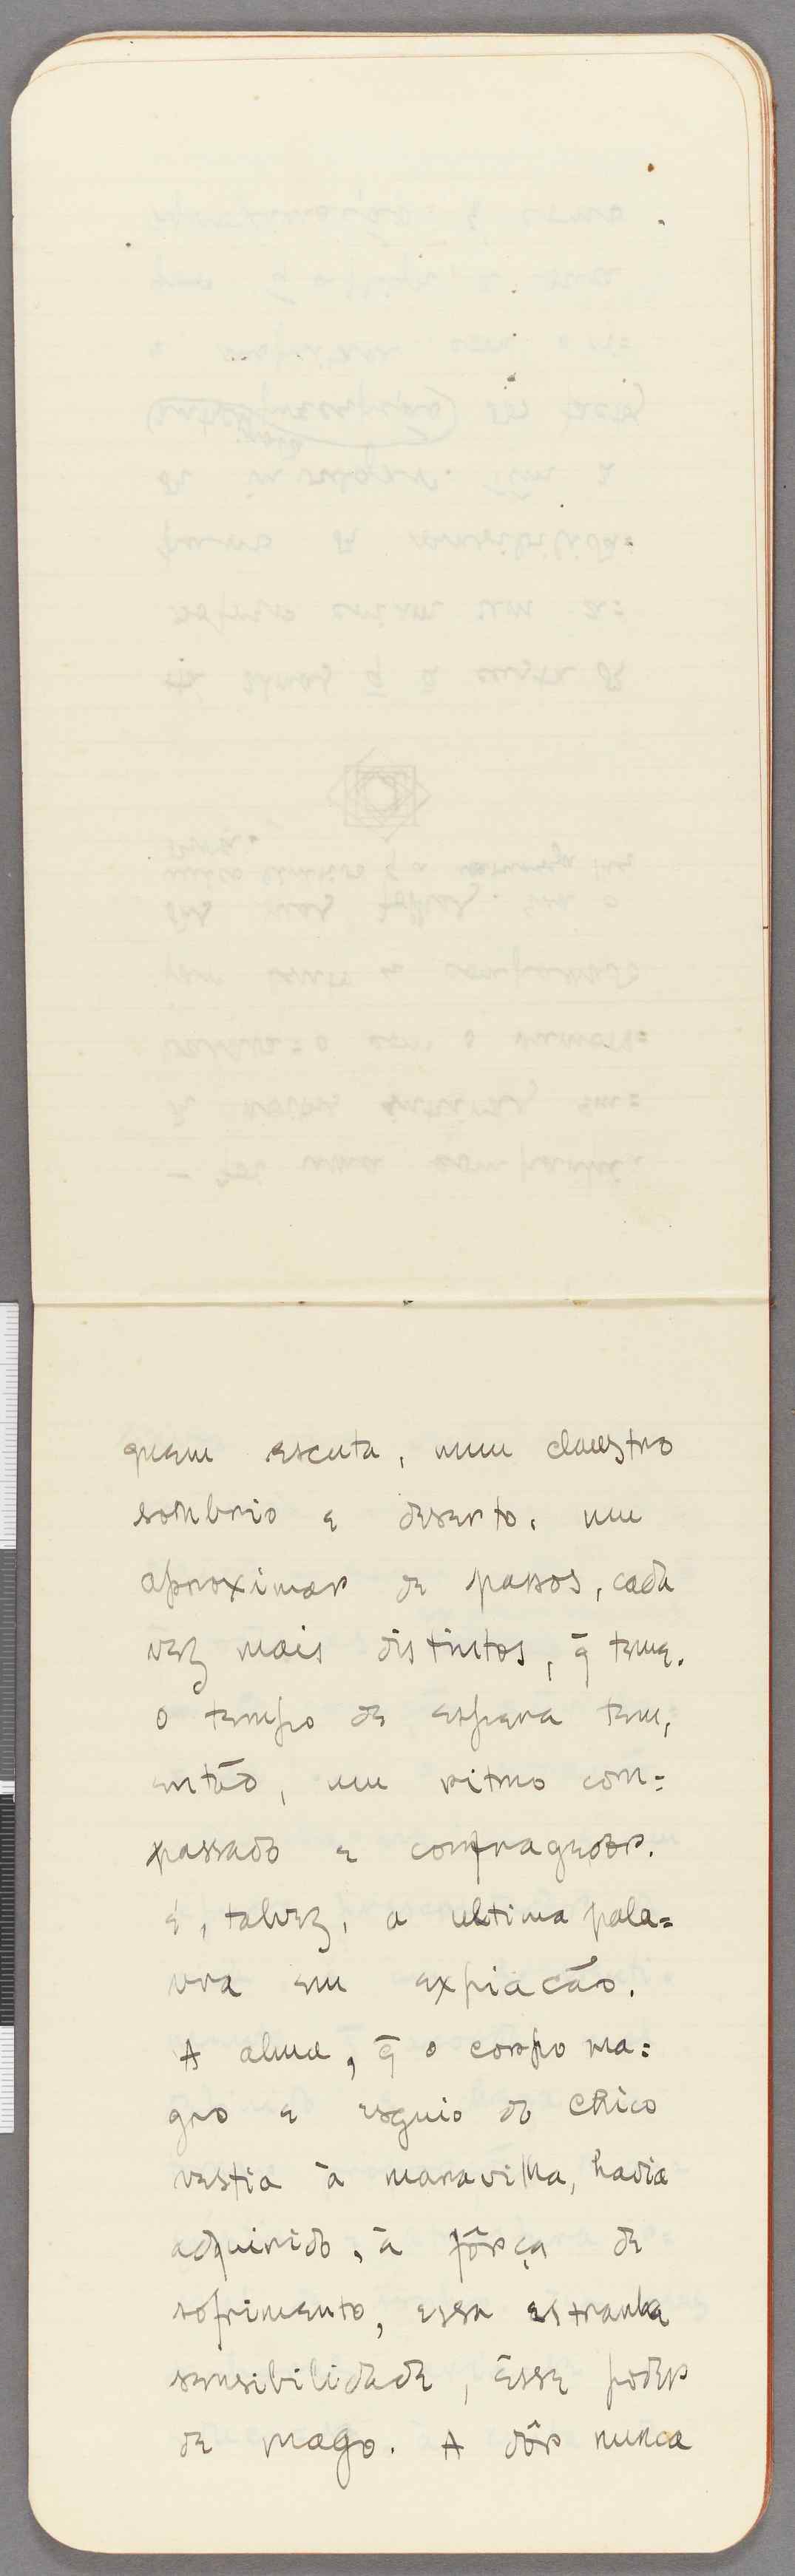 quem escuta, num claustro
sombrio e deserto, um
aproximar de passos, cada
vez mais distintos, q̄ teme.
O tempo de espera tem,
então, um ritmo com=
passado e confrangedor.
É, talvez, a ultima pala=
vra em expiação.
A alma, q̄ o corpo ma=
gro e esguio do Chico
vestia à maravilha, havia
adquirido, à fôrça de
sofrimento, essa estranha
sensibilidade, êsse poder
de mago. A dôr nunca